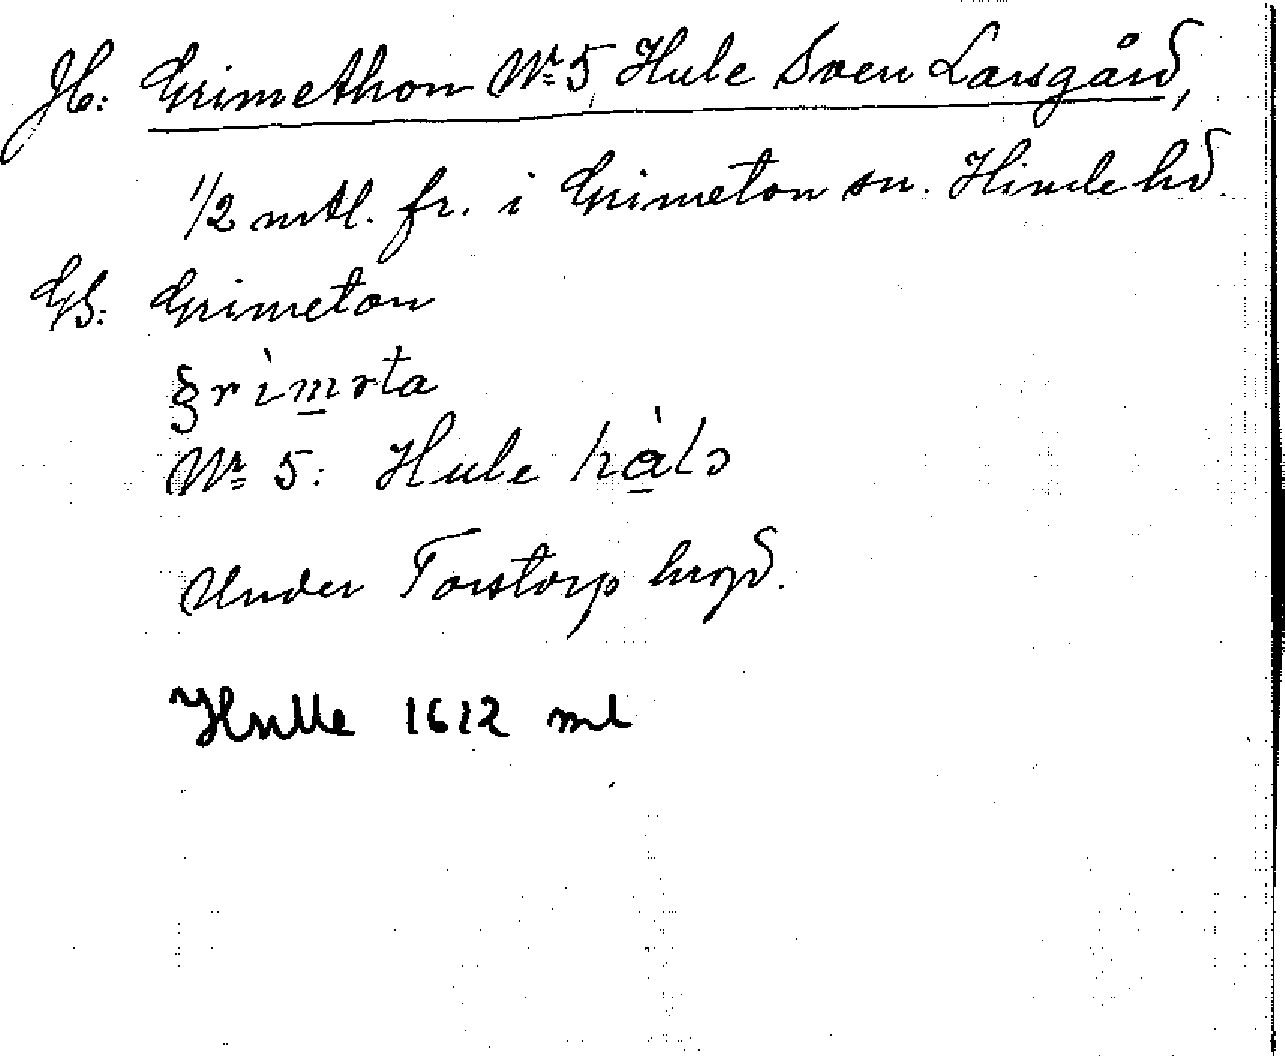 Jb: Grimethon Nr 5 Hule Sven Larsgård,
1/2 mtl. fr. i Grimeton sn. Himle hd.
GB: Grimeton
Nr 5: Hule
Under Torstorp hvgd.
Hulle 1612 ml